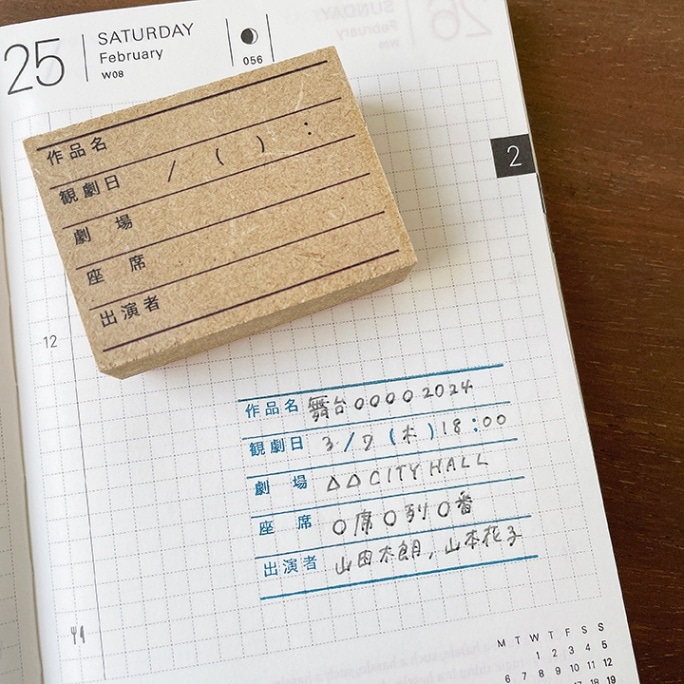 25 SATURDAY
February
W08
056
作品名
観劇日 / ( ) :
劇 場
座 席
出演者
2
12
作品名 舞台0000 2024
観劇日 3/7(木)18:00
劇 場 △△CITY HALL
座 席 ○席○列○番
出演者 山田太朗, 山本花子
M T W T F S S
1 2 3 4 5
6 7 8 9 10 11 12